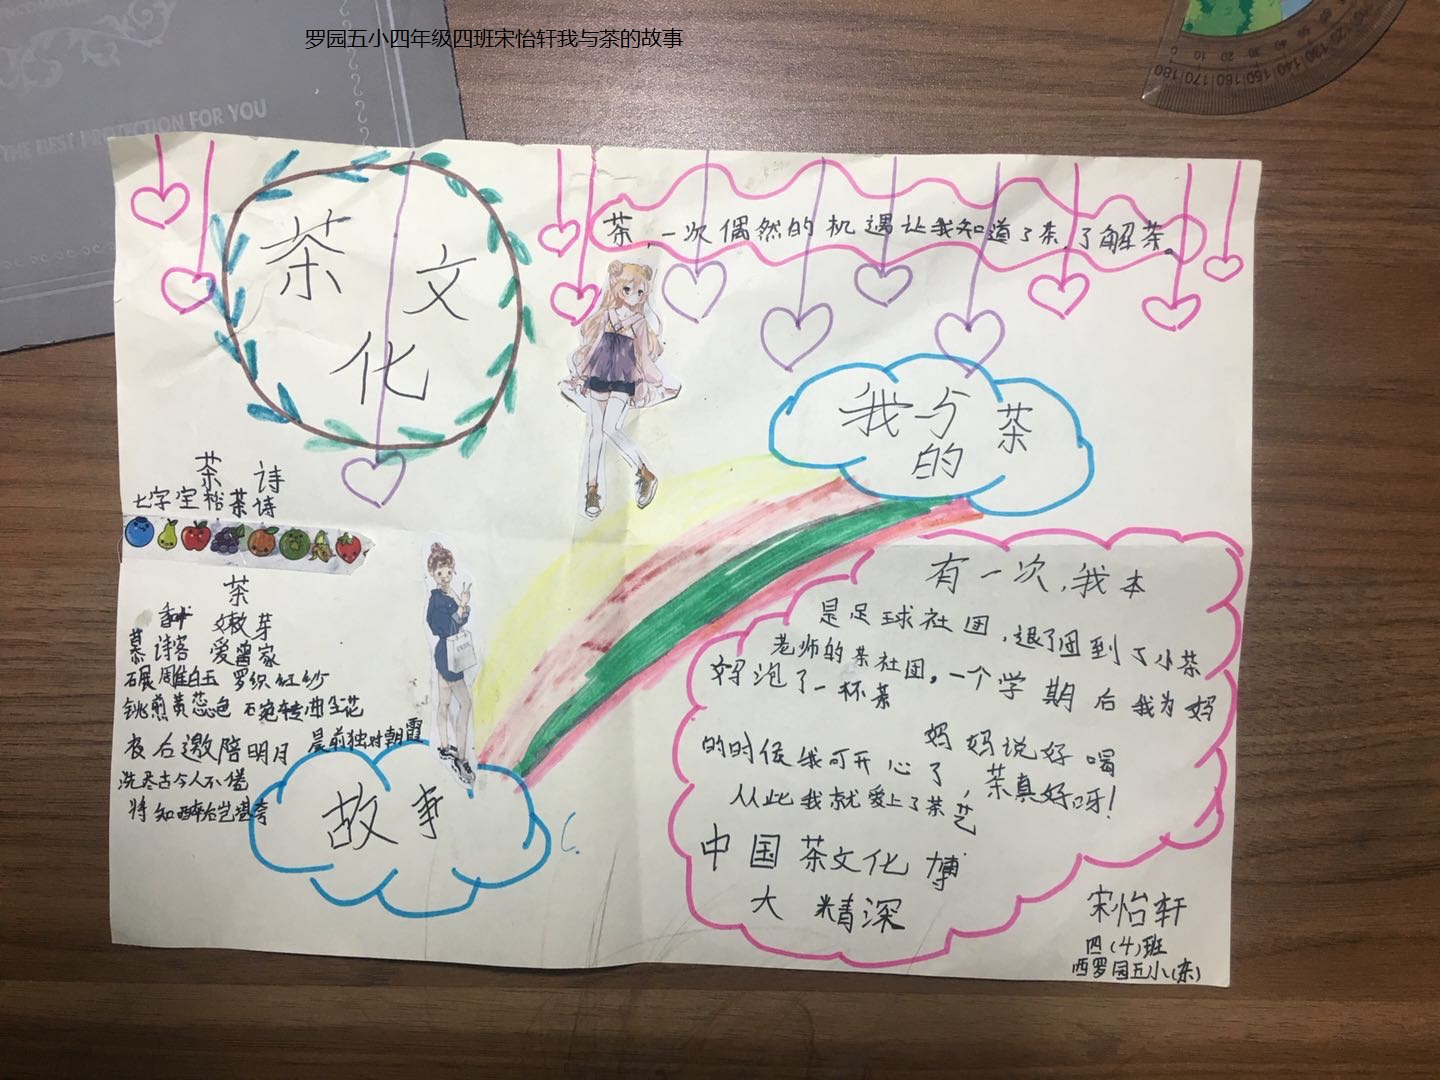 罗园五小四年级四班宋怡轩我与茶的故事
THE BEST PROTECTION FOR YOU
茶文
化
茶,一次偶然的机遇让我知道了茶,了解茶。
我与茶
的
茶诗
七字宝塔茶诗
茶
嫩芽
慕诗客 爱僧家
碾雕白玉 罗织红纱
铫煎黄蕊色 碗转曲尘花
夜后邀陪明月
晨前独对朝霞
洗尽古今人不倦
将知醉后岂堪夸
故事
有一次,我本
是足球社团,退了团到了小茶
老师的茶社团。一个学期后我为妈
妈泡了一杯茶
妈妈说好喝
的时候我可开心了,茶真好呀!
从此我就爱上了茶艺
中国茶文化博
大精深
宋怡轩
四(4)班
西罗园五小(东)
0 10 20 30 40 50 60
180 170 160 150 140 130 120